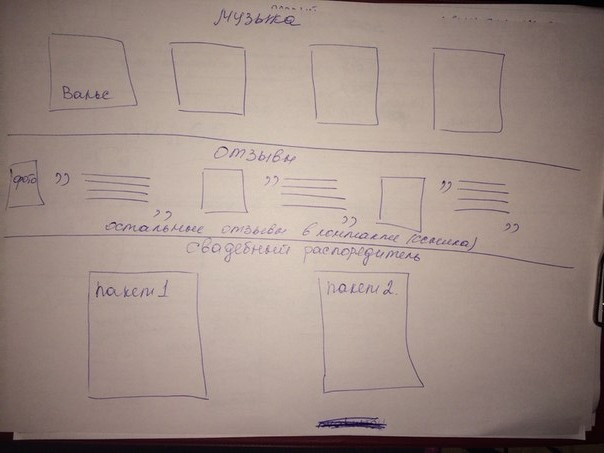 Музыка
Вальс
Отзывы
фото
остальные отзывы в контакте (ссылка)
свадебный распоредитель
пакет 1
пакет 2.